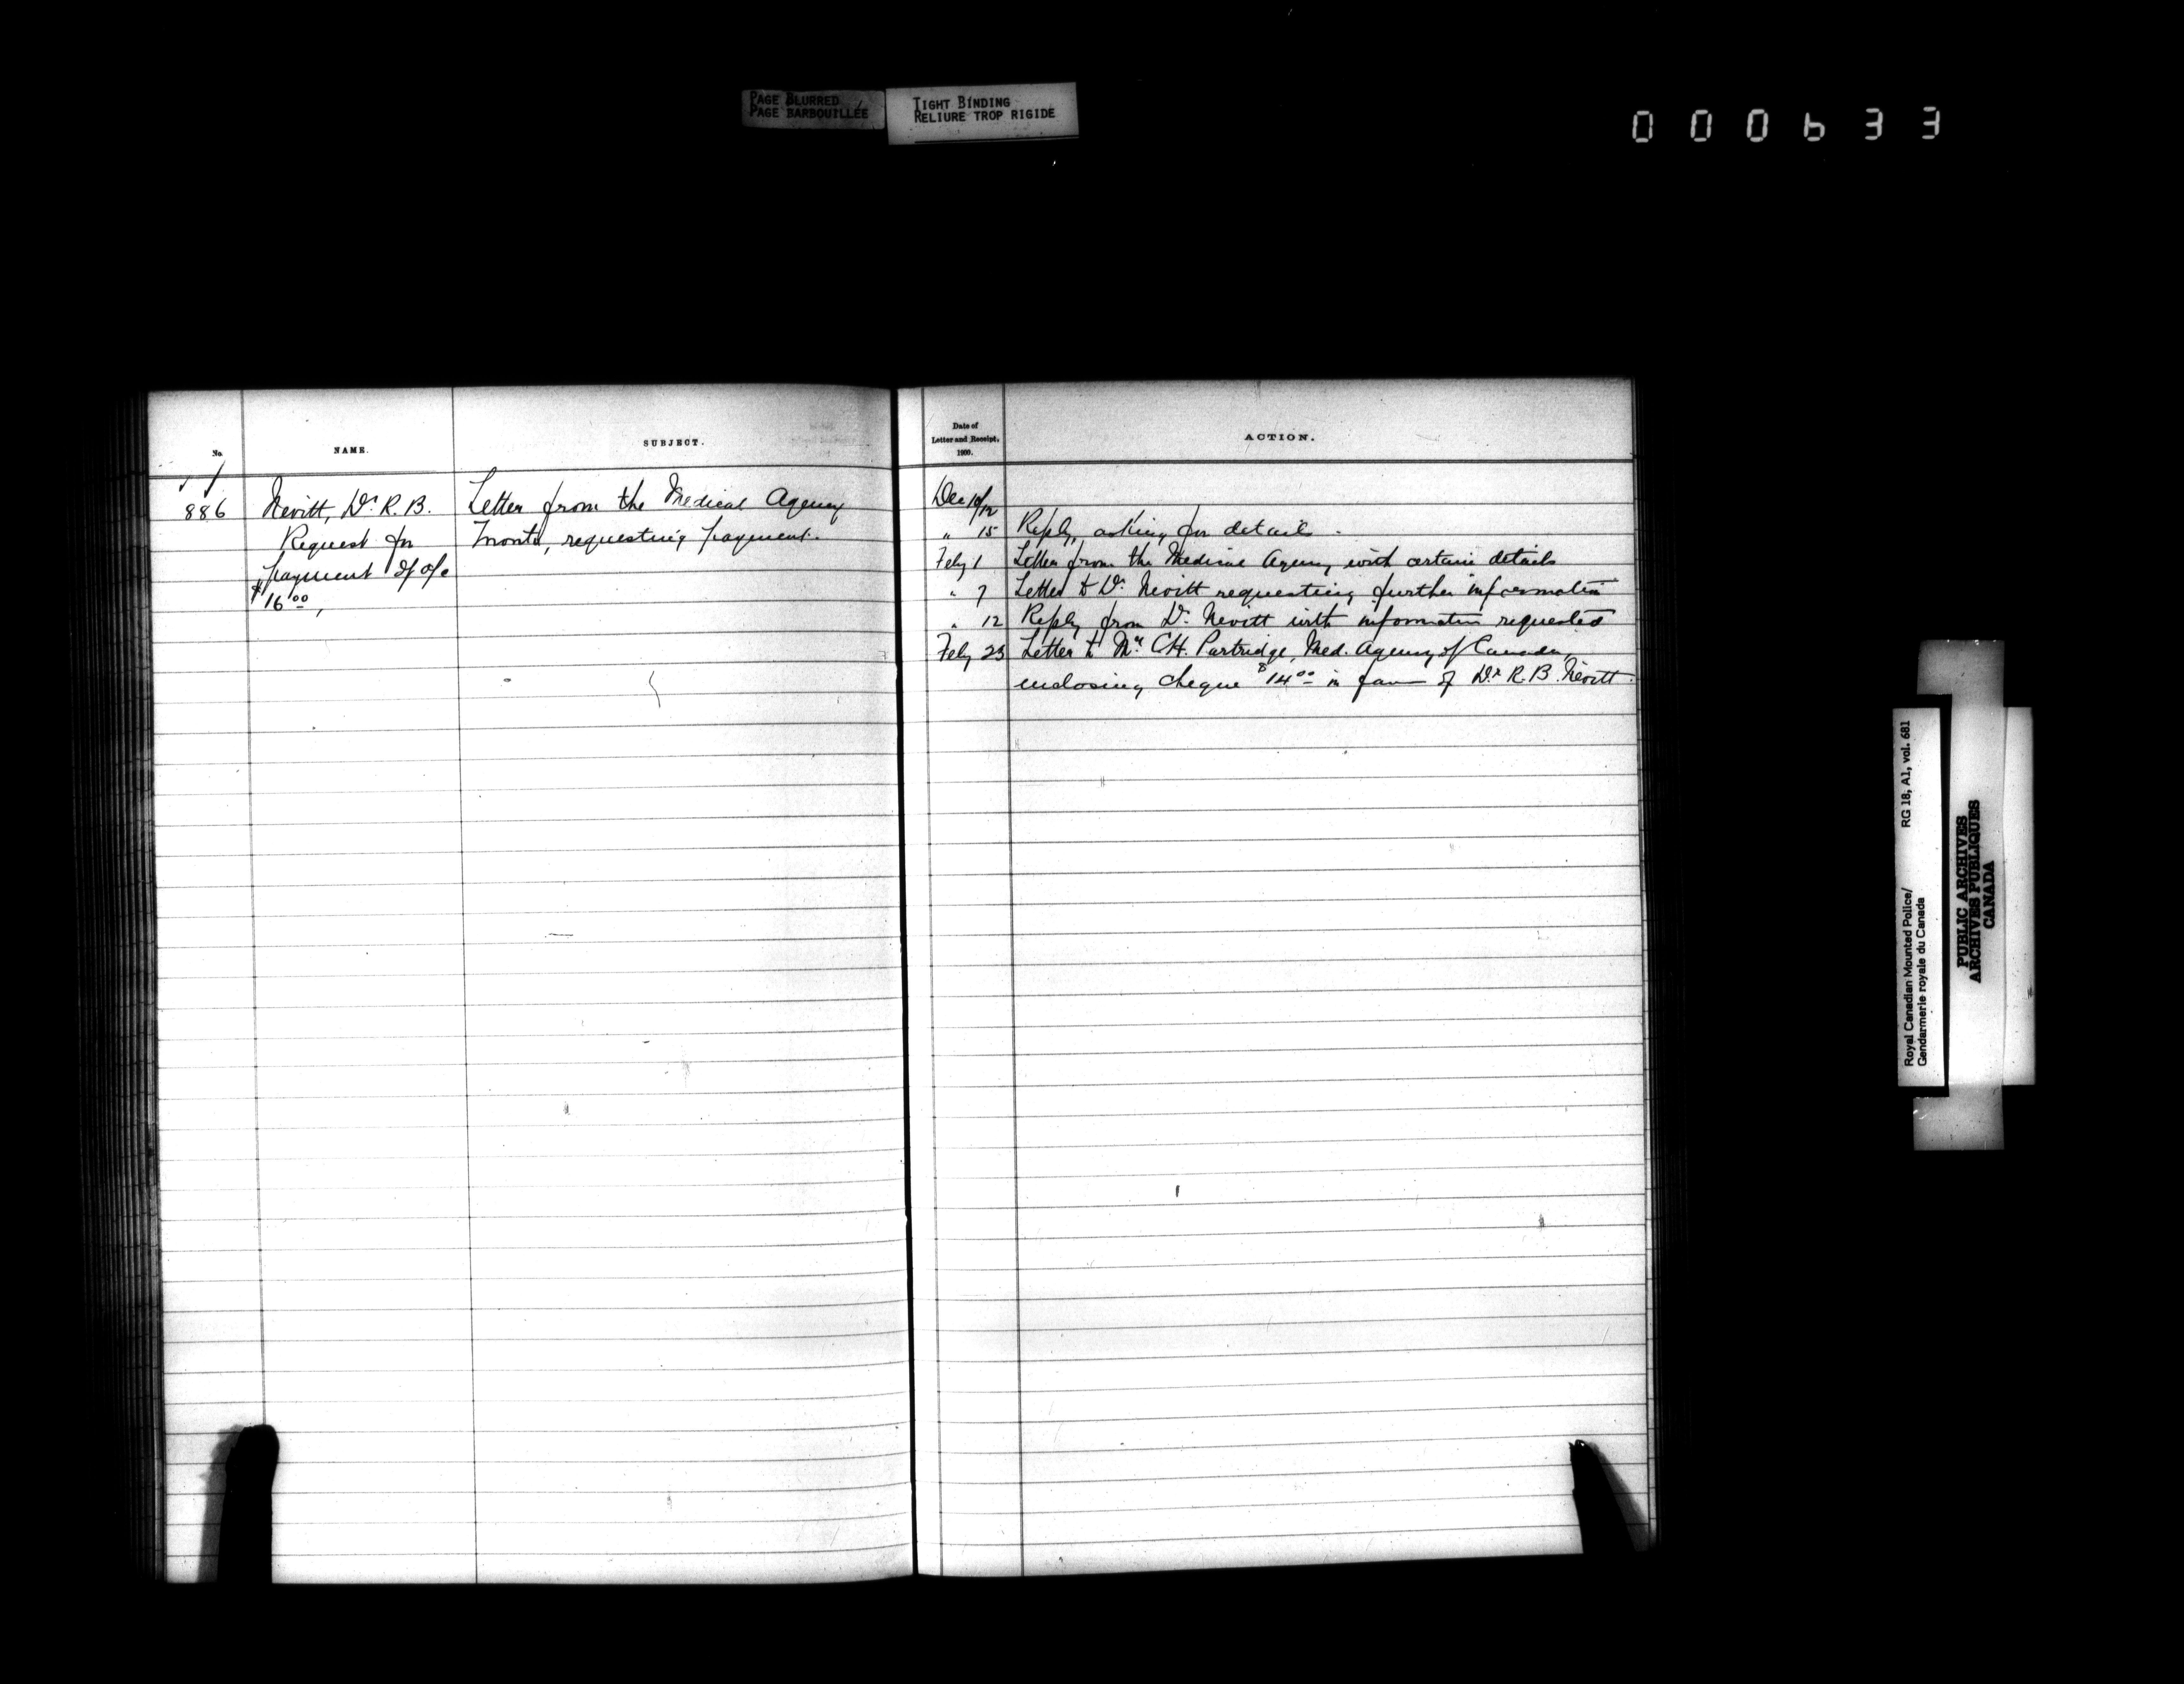 PAGE BLURRED
PAGE BARBOUILLÉE
TIGHT BINDING
RELIURE TROP RIGIDE
000633
No.
NAME.
SUBJECT.
886
Nevitt, Dr. R. B.
Request for
payment of a/c
$16.00,
Letter from the Medical Agency
Toronto, requesting payment.
Date of
Letter and Receipt,
1900.
ACTION.
Dec 10/12
" 15 Reply, asking for details.
Feby 1 Letter from the Medical Agency with certain details
" 7 Letter to Dr. Nevitt requesting further information
" 12 Reply from Dr. Nevitt with information requested
Feby 23 Letter to Mr. C.H. Partridge, Med. Agency of Canada,
enclosing cheque $14.00 in favor of Dr. R. B. Nevitt.
Royal Canadian Mounted Police/ RG 18, A1, vol. 681
Gendarmerie royale du Canada
PUBLIC ARCHIVES
ARCHIVES PUBLIQUES
CANADA